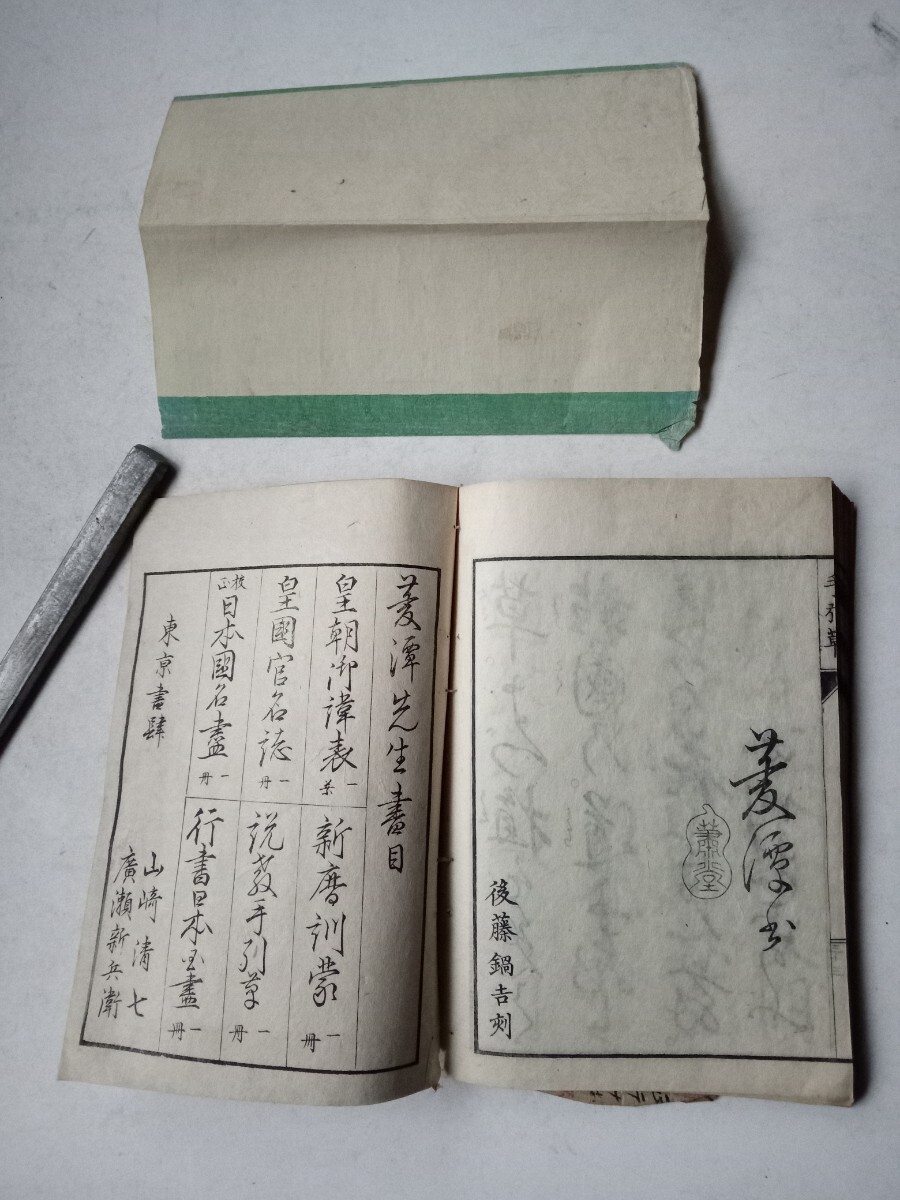 菱潭書
蕭堂
後藤鍋吉刻
菱潭先生書目
皇朝御諱表 一葉
新暦訓蒙 一冊
皇國官名誌 一冊
説教手引草 一冊
校正 日本國名盡 一冊
行書日本国盡 一冊
東京書肆
山崎清七
廣瀬新兵衛